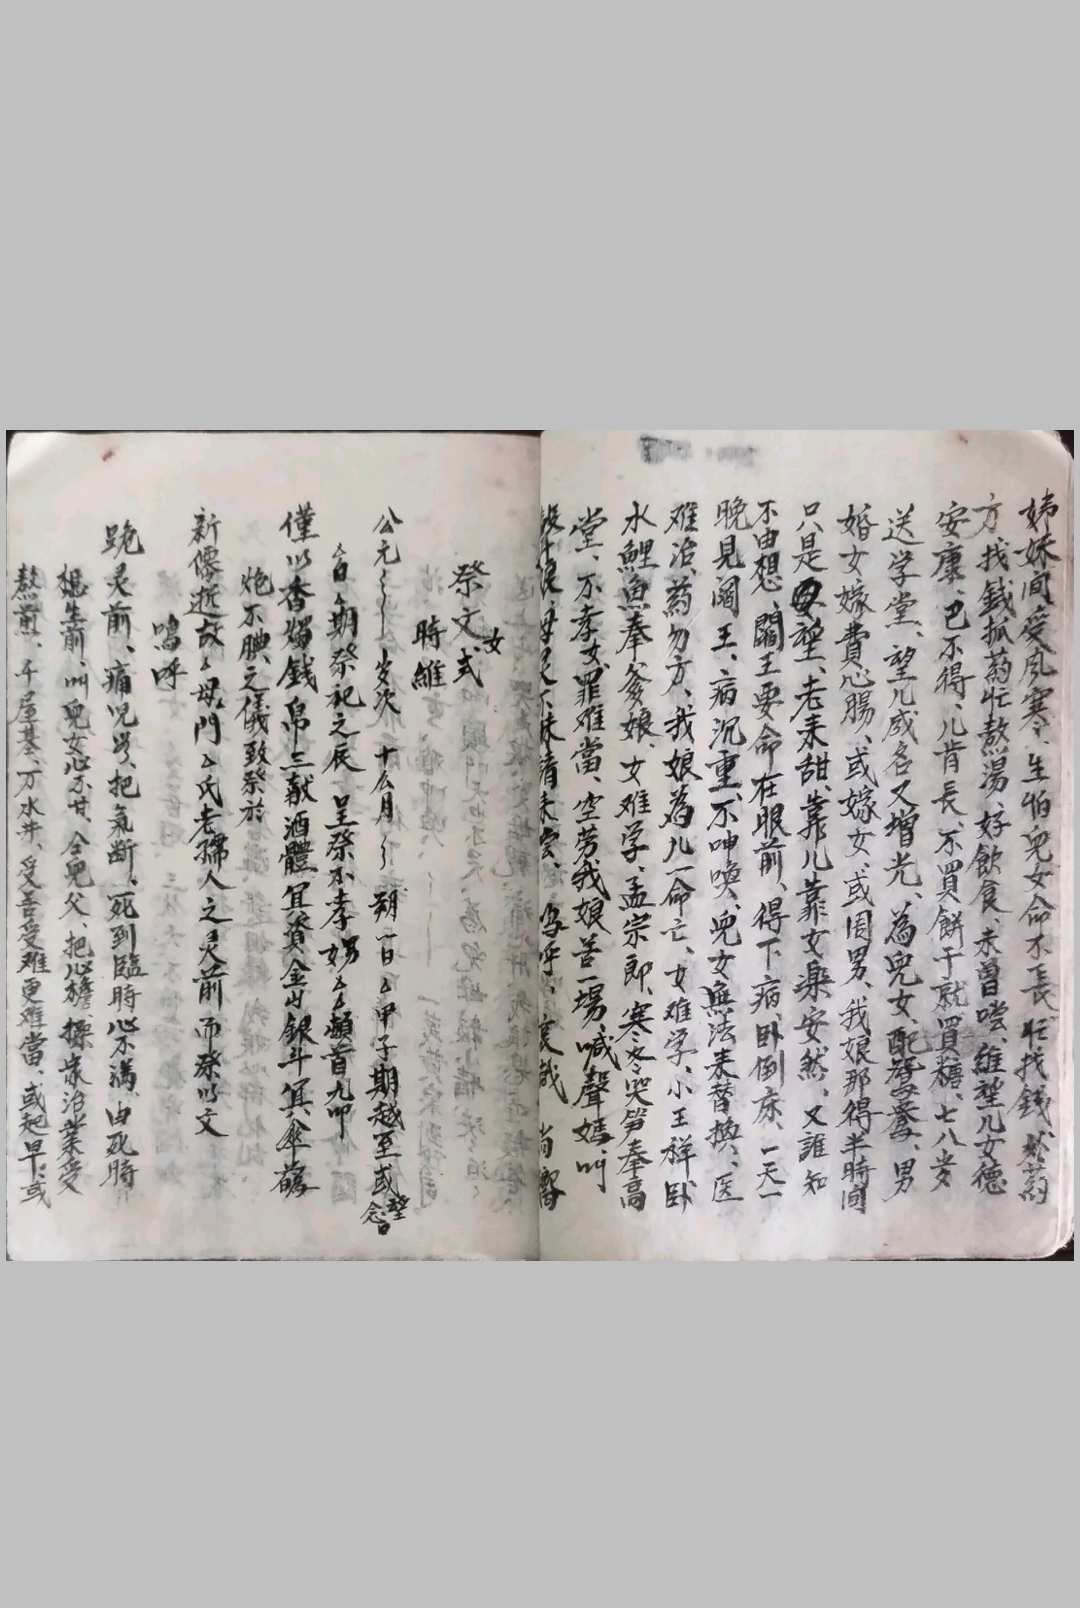 姊妹间受风寒、生怕兒女命不長、忙找錢、
方、找錢抓药忙熬湯、好飲食、未曾嚐、維望儿女德
安康、巴不得、儿肯長、不買餅干就買糖、七八岁
送学堂、望儿成名又增光、為兒女、配、男
婚女嫁費心腸、或嫁女、或囯男、我娘那得半時间
只是母望、老来甜、靠儿靠女樂安然、又誰知
不由想、閻王要命在眼前、得下病、卧倒床、一天一
晚見阎王、病沉重、不呻唤、兒女無法来替换、医
难治、药勿方、我娘為儿一命亡、女难学、小王祥卧
水鯉魚奉爹娘、女难学、孟宗郎、寒冬哭笋奉高
堂、不孝女、罪难當、空劳我娘苦一場、喊聲媽、叫
聲娘、母灵下来請来尝、嗚呼、哀哉 尚饗
祭文式 女
時維
公元 岁次 十么月 朔一日 甲子期越至或望念日
日 期祭祀之辰 呈祭不孝娚 頓首九叩
僅以香燭錢帛三献酒醴宜資金山銀斗冥傘
炮不腆之儀致祭於
新僊逝故 母 門 氏老孺人之灵前而祭以文
嗚呼
跪灵前、痛兕兕、把氣断、死到臨時心不满、由死時
想生前、叫兒女心不甘、仝兒父、把心擔、操家治業受
熬煎、千屋基、万水井、受苦受难更难當、或起早、或